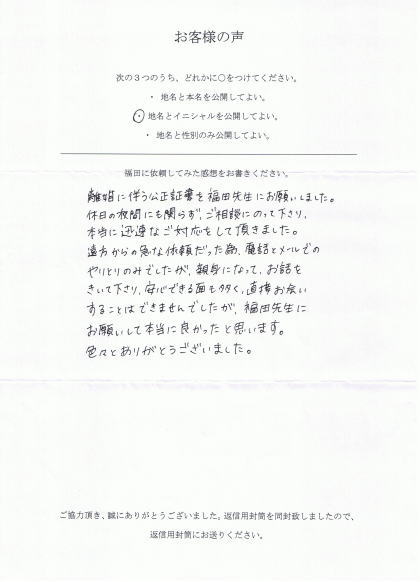 お客様の声
次の3つのうち、どれかに○をつけてください。
・ 地名と本名を公開してよい。
・ 地名とイニシャルを公開してよい。
・ 地名と性別のみ公開してよい。
福田に依頼してみた感想をお書きください。
離婚に伴う公正証書を福田先生にお願いしました。
休日の夜間にも関らず、ご相談にのって下さり、
本当に迅速なご対応をして頂きました。
遠方からの急な依頼だった為、電話とメールでの
やりとりのみでしたが、親身になって、お話を
きいて下さり、安心できる面も多く、直接お会い
することはできませんでしたが、福田先生に
お願いして本当に良かったと思います。
色々とありがとうございました。
ご協力頂き、誠にありがとうございました。返信用封筒を同封致しましたので、
返信用封筒にお送りください。